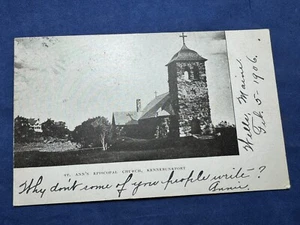 ST. ANN'S EPISCOPAL CHURCH, KENNEBUNKPORT
Wells, Maine
Feb. 5 - 1906.
Why don't some of you people write?
Annie.